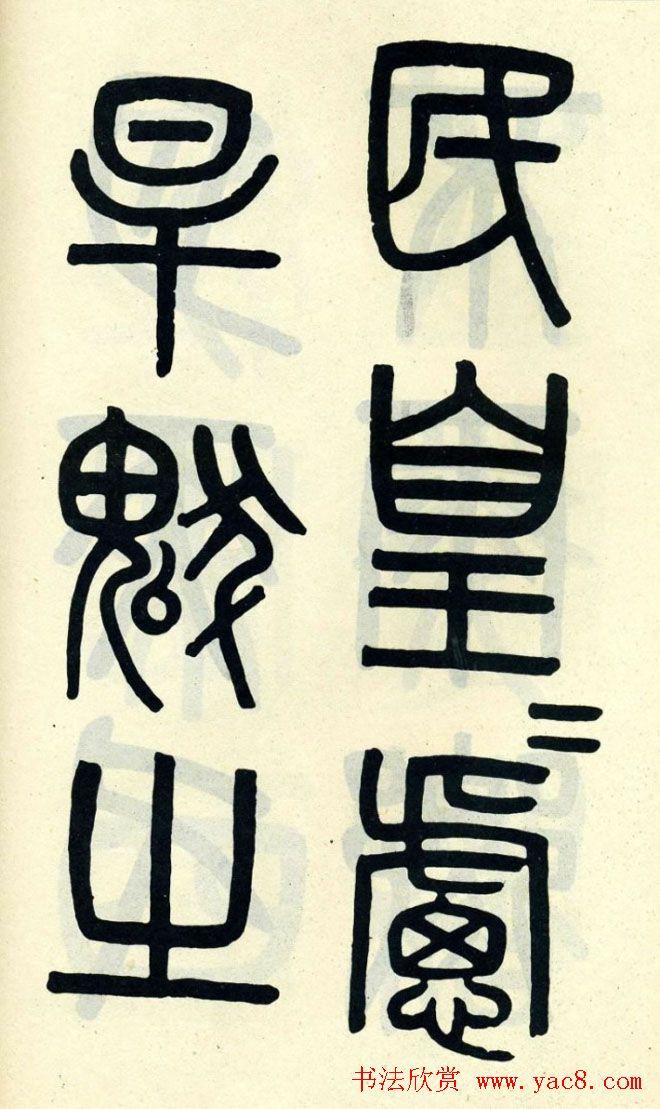 民皇〻慮
旱魃之
书法欣赏 www.yac8.com